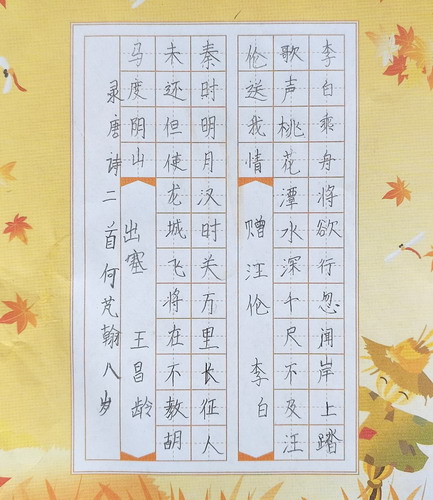 李白乘舟将欲行忽闻岸上踏
歌声桃花潭水深千尺不及汪
伦送我情 赠汪伦 李白
秦时明月汉时关万里长征人
未还但使龙城飞将在不教胡
马度阴山 出塞 王昌龄
录唐诗二首 何芃翰八岁